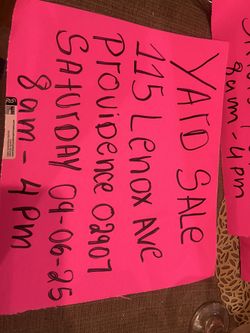 YARD SALE
115 LENOX AVE
PROVIDENCE 02907
SATURDAY 09-06-25
8am - 4pm
8am - 4pm